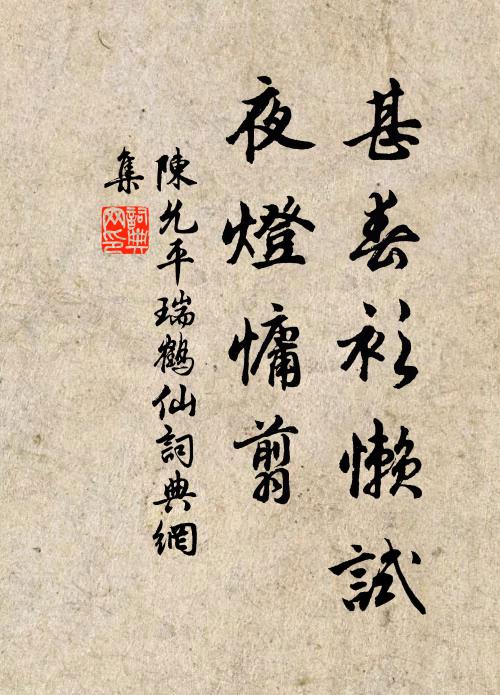 甚春衫懶試
夜燈慵翦
陳允平瑞鶴仙詞典網
集
詞典
网印